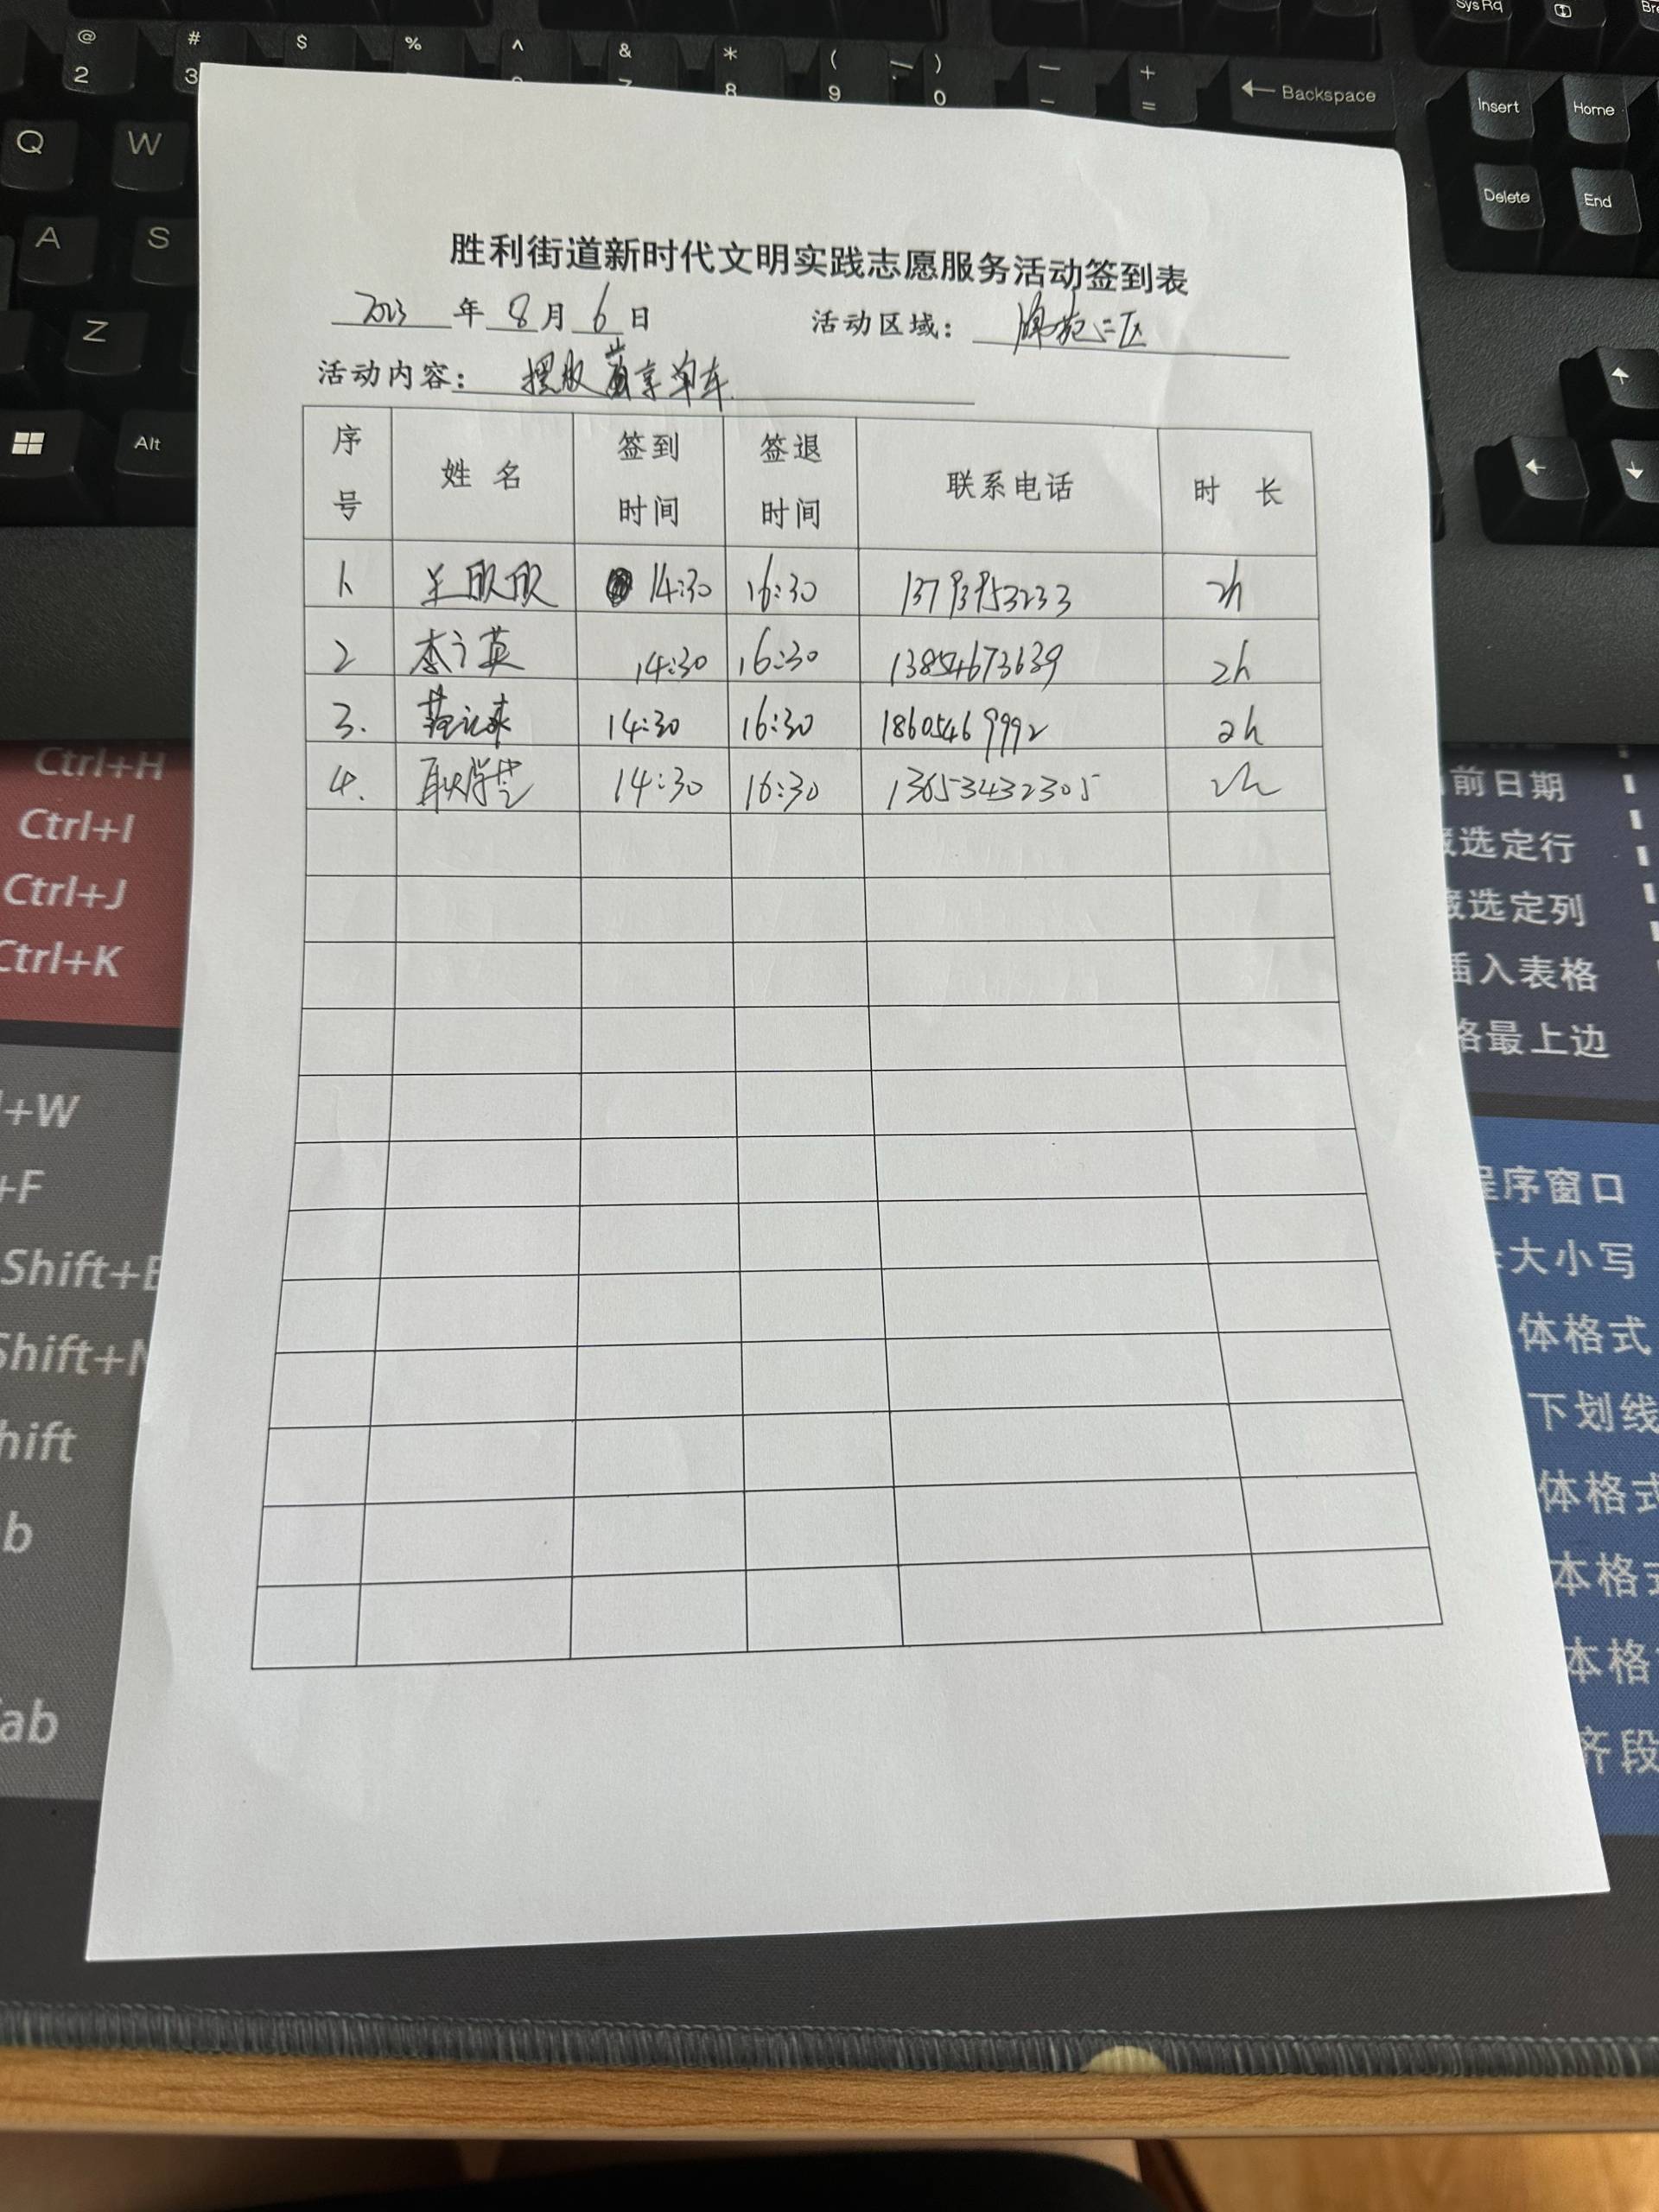 SysRq
@ # $ % ^ & * ( ) — +
2 3 8 9 0 - =
← Backspace
Insert Home
Q W
Delete End
A S
Z
Alt
胜利街道新时代文明实践志愿服务活动签到表
2023 年 8 月 6 日 活动区域: 锦苑二区
活动内容: 摆放共享单车
序号 姓名 签到时间 签退时间 联系电话 时长
1. 欣欣 14:30 16:30 13793953233 2h
2 李 英 14:30 16:30 13854673639 2h
3. 14:30 16:30 18605469992 2h
4. 耿学芝 14:30 16:30 13653432305 2h
Ctrl+H
Ctrl+I
Ctrl+J
Ctrl+K
+W
+F
Shift+E
Shift+N
hift
b
ab
前日期
选定行
藏选定列
插入表格
格最上边
程序窗口
大小写
体格式
下划线
体格式
本格式
本格
齐段